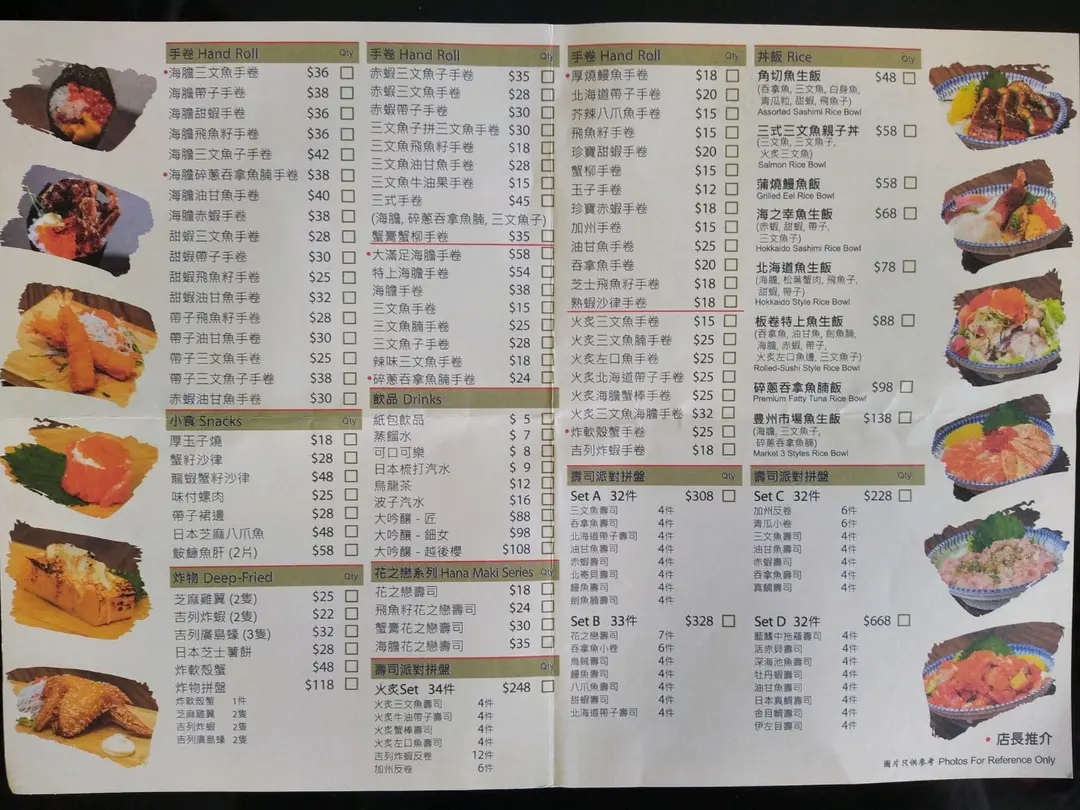 手卷 Hand Roll Qty
•海膽三文魚手卷 $36
海膽帶子手卷 $38
海膽甜蝦手卷 $36
海膽飛魚籽手卷 $36
海膽三文魚子手卷 $42
•海膽碎蔥吞拿魚腩手卷 $38
海膽油甘魚手卷 $40
海膽赤蝦手卷 $38
甜蝦三文魚手卷 $28
甜蝦帶子手卷 $30
甜蝦飛魚籽手卷 $25
甜蝦油甘魚手卷 $32
帶子飛魚籽手卷 $28
帶子油甘魚手卷 $30
帶子三文魚手卷 $25
帶子三文魚子手卷 $38
赤蝦油甘魚手卷 $30
小食 Snacks Qty
厚玉子燒 $18
蟹籽沙律 $28
龍蝦蟹籽沙律 $48
味付螺肉 $25
帶子裙邊 $28
日本芝麻八爪魚 $48
鮟鱇魚肝 (2片) $58
炸物 Deep-Fried Qty
芝麻雞翼 (2隻) $25
吉列炸蝦 (2隻) $22
吉列廣島蠔 (3隻) $32
日本芝士薯餅 $28
炸軟殼蟹 $48
炸物拼盤 $118
炸軟殼蟹 1件
芝麻雞翼 2隻
吉列炸蝦 2隻
吉列廣島蠔 2隻
手卷 Hand Roll Qty
赤蝦三文魚子手卷 $35
赤蝦三文魚手卷 $28
赤蝦帶子手卷 $30
三文魚子拼三文魚手卷 $30
三文魚飛魚籽手卷 $18
三文魚油甘魚手卷 $28
三文魚牛油果手卷 $15
三式手卷 $45
(海膽, 碎蔥吞拿魚腩, 三文魚子)
蟹膏蟹柳手卷 $35
•大滿足海膽手卷 $58
特上海膽手卷 $54
海膽手卷 $38
三文魚手卷 $15
三文魚腩手卷 $25
三文魚子手卷 $28
辣味三文魚手卷 $18
•碎蔥吞拿魚腩手卷 $24
飲品 Drinks
紙包飲品 $ 5
蒸餾水 $ 7
可口可樂 $ 8
日本梳打汽水 $ 9
烏龍茶 $12
波子汽水 $16
大吟釀 - 匠 $88
大吟釀 - 細女 $98
大吟釀 - 越後櫻 $108
花之戀系列 Hana Maki Series Qty
花之戀壽司 $18
飛魚籽花之戀壽司 $24
蟹膏花之戀壽司 $30
海膽花之戀壽司 $35
壽司派對拼盤 Qty
火炙Set 34件 $248
火炙三文魚壽司 4件
火炙牛油帶子壽司 4件
火炙蟹棒壽司 4件
火炙左口魚壽司 4件
吉列炸蝦反卷 12件
加州反卷 6件
手卷 Hand Roll Qty
•厚燒鰻魚手卷 $18
北海道帶子手卷 $20
芥辣八爪魚手卷 $15
飛魚籽手卷 $15
珍寶甜蝦手卷 $20
蟹柳手卷 $15
玉子手卷 $12
珍寶赤蝦手卷 $18
加州手卷 $15
油甘魚手卷 $25
吞拿魚手卷 $20
芝士飛魚籽手卷 $18
熟蝦沙律手卷 $18
火炙三文魚手卷 $15
火炙三文魚腩手卷 $25
火炙左口魚手卷 $25
火炙北海道帶子手卷 $25
火炙海膽蟹棒手卷 $25
火炙三文魚海膽手卷 $32
•炸軟殼蟹手卷 $25
吉列炸蝦手卷 $18
壽司派對拼盤 Qty
Set A 32件 $308
三文魚壽司 4件
吞拿魚壽司 4件
北海道帶子壽司 4件
油甘魚壽司 4件
赤蝦壽司 4件
北寄貝壽司 4件
鰻魚壽司 4件
劍魚腩壽司 4件
Set B 33件 $328
花之戀壽司 7件
吞拿魚小卷 6件
鳥賊壽司 4件
鰻魚壽司 4件
八爪魚壽司 4件
甜蝦壽司 4件
北海道帶子壽司 4件
丼飯 Rice Qty
角切魚生飯 $48
(吞拿魚, 三文魚, 白身魚,
青瓜粒, 甜蝦, 飛魚子)
Assorted Sashimi Rice Bowl
三式三文魚親子丼 $58
(三文魚, 三文魚子,
火炙三文魚)
Salmon Rice Bowl
蒲燒鰻魚飯 $58
Grilled Eel Rice Bowl
海之幸魚生飯 $68
(赤蝦, 甜蝦, 帶子,
三文魚子)
Hokkaido Sashimi Rice Bowl
北海道魚生飯 $78
(海膽, 松葉蟹肉, 飛魚子,
甜蝦, 帶子)
Hokkaido Style Rice Bowl
板卷特上魚生飯 $88
(吞拿魚, 油甘魚, 劍魚腩,
海膽, 赤蝦, 帶子,
火炙左口魚邊, 三文魚子)
Rolled-Sushi Style Rice Bowl
碎蔥吞拿魚腩飯 $98
Premium Fatty Tuna Rice Bowl
豊州市場魚生飯 $138
(海膽, 三文魚子,
碎蔥吞拿魚腩)
Market 3 Styles Rice Bowl
壽司派對拼盤 Qty
Set C 32件 $228
加州反卷 6件
青瓜小卷 6件
三文魚壽司 4件
油甘魚壽司 4件
赤蝦壽司 4件
吞拿魚壽司 4件
真鯛壽司 4件
Set D 32件 $668
藍鰭中拖羅壽司 4件
活赤貝壽司 4件
深海池魚壽司 4件
牡丹蝦壽司 4件
油甘魚壽司 4件
日本真鯛壽司 4件
金目鯛壽司 4件
伊左目壽司 4件
• 店長推介
圖片只供參考 Photos For Reference Only